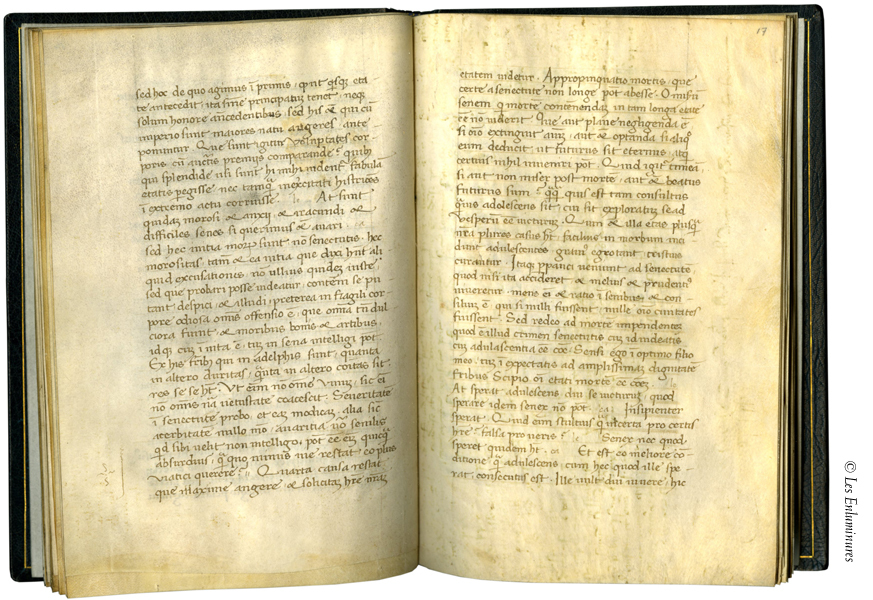 sed hoc de quo agimus ī primis
te antecedit ita sīne principatū tenet neq;
solum honore ātecedentibus sed his & qui cū
imperio sunt maiores natu augeres ante
ponuntur . Que sunt igitur Voluptates cor
poris cū auctis premijs comparande ? quib;
qui splendide usi sunt hi mihi uident̄ fabulā
etatis peregisse nec tamq̄ inexercitati histriones
ī extremo actu corruisse . At sunt
quidaȝ morosi & anxij & iracundi &
difficiles senes si querimus & auari .
sed hec uitia morȝ sunt nō senectutis . hec
morositas tam̄ & ea uitia que dixi hn̄t ali
quid excusationes nō ullius quidez iuste
sed que probari posse uideatur . contēni se pu
tant despici & alludi preterea in fragili cor
pore odiosa omīs offensio ē que omīa tn̄ dul
ciora fiunt & moribus bonis & artibus
idq; cuȝ ī uita ē tuȝ in sena intelligi pōt
Ex his frīb; qui in adelphis sunt quanta
in altero duritas q̄nta in altero comitas sit
res se se ht̄ . Vt eīm nō om̄e Vinuȝ sic eī
nō omīs nā uetustate coalescit . Seueritatē
ī senectute probo et eaȝ modicaȝ alia sic
acerbitate nullo mō . auaritia uō senilis
qd sibi uelit non intelligo . pōt ēē eīm quicq̄
absurdius q̄ quo minus uie restat eo plus
Viatici querere ? Quarta causa restat
que maxime angere & solicitaȝ hr̄e nr̄aȝ
17
etatem uidetur . Appropinquatio mortis que
certe a senectute non longe pōt abesse . O miserū
senem q mortē contēnendaȝ in tam longa etate
ēē nō uiderit . Que aut plane negligenda ē
si oīo extinguit aīuȝ aut & optanda si aliq̄
eum deducit ut futurus sit eternus . atq̄
certius nihil inueniri pōt . Quid igit̄ timeā
si aut non miser post mortē aut & beatus
futurus sum . q̄q̄ quis est tam consultus
q̄uis adolescens sit cui sit exploratuȝ se ad
Vesperū ēē uicturuȝ . Quin & illa etas plusq̄
nr̄a plures casus ht̄ . facilius in morbum inci
dunt adulescentes grauiꝰ egrotant tristius
curantur . Itaq; ppauci ueniunt ad senectutē
quod nisi ita accideret & melius & prudentiꝰ
uiueretur . mens eī & ratio ī senibus & con
siliuȝ ē qui si nulli fuissent nulle oīo ciuitates
fuissent . Sed redeo ad mortē impendentē
quod ē illud crimen senectutis cuȝ id uideatis
cuȝ adulascentia ēē cōē . Sensi ego ī optimo filio
meo . tuȝ ī expectatis ad amplissimaȝ dignitatē
fr̄ibus Scipio oī etati mortē ēē cōeȝ
At sperat adulescens diu se uicturuȝ quod
sperare idem senex nō pōt . Insipienter
sperat . Quid eīm stultius q̄ incerta pro certis
hr̄e falsa pro ueris ? Senex nec quod
speret quidem ht̄ . Et est eo meliore cō
ditione q̄ adulescens cum hec quod ille spe
rat consecutus est . Ille uult diu uiuere hic
© Les Enluminures